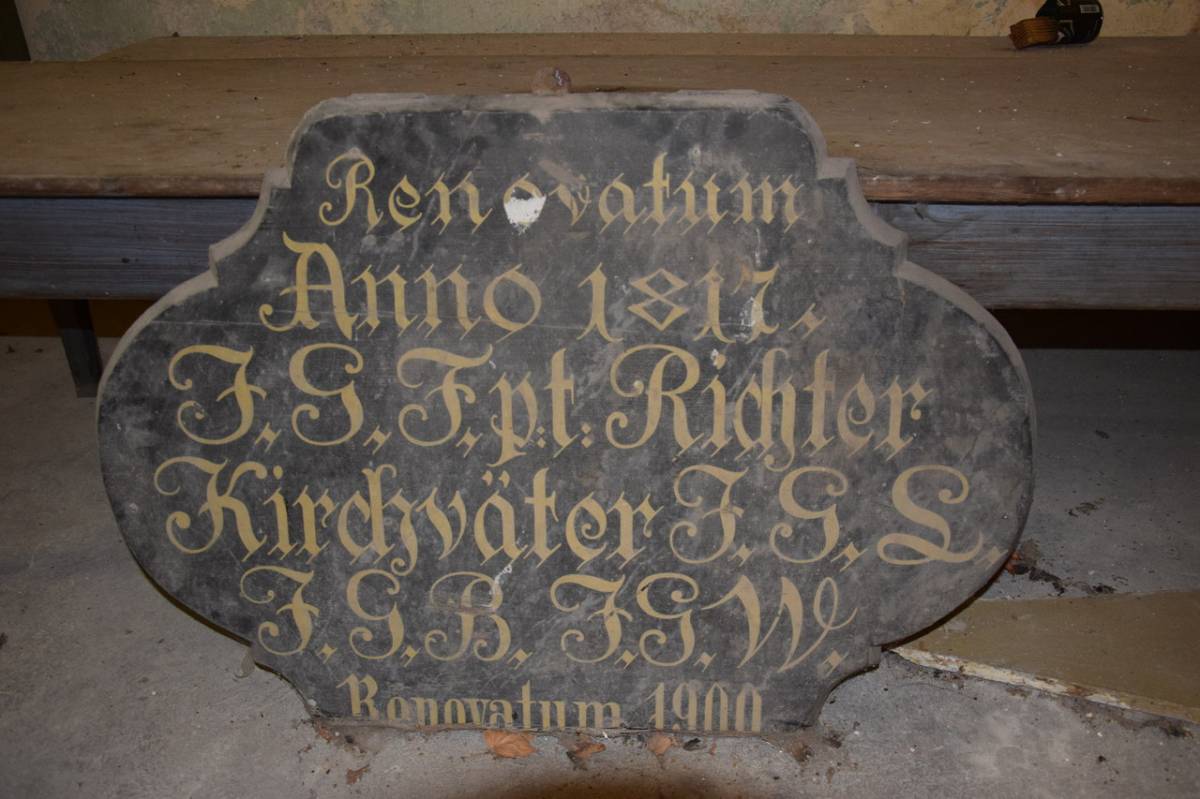 Renovatum
Anno 1817.
J. G. F. p:t: Richter
Kirchväter J. G. L.
J. G. B. J. G. W.
Renovatum 1900